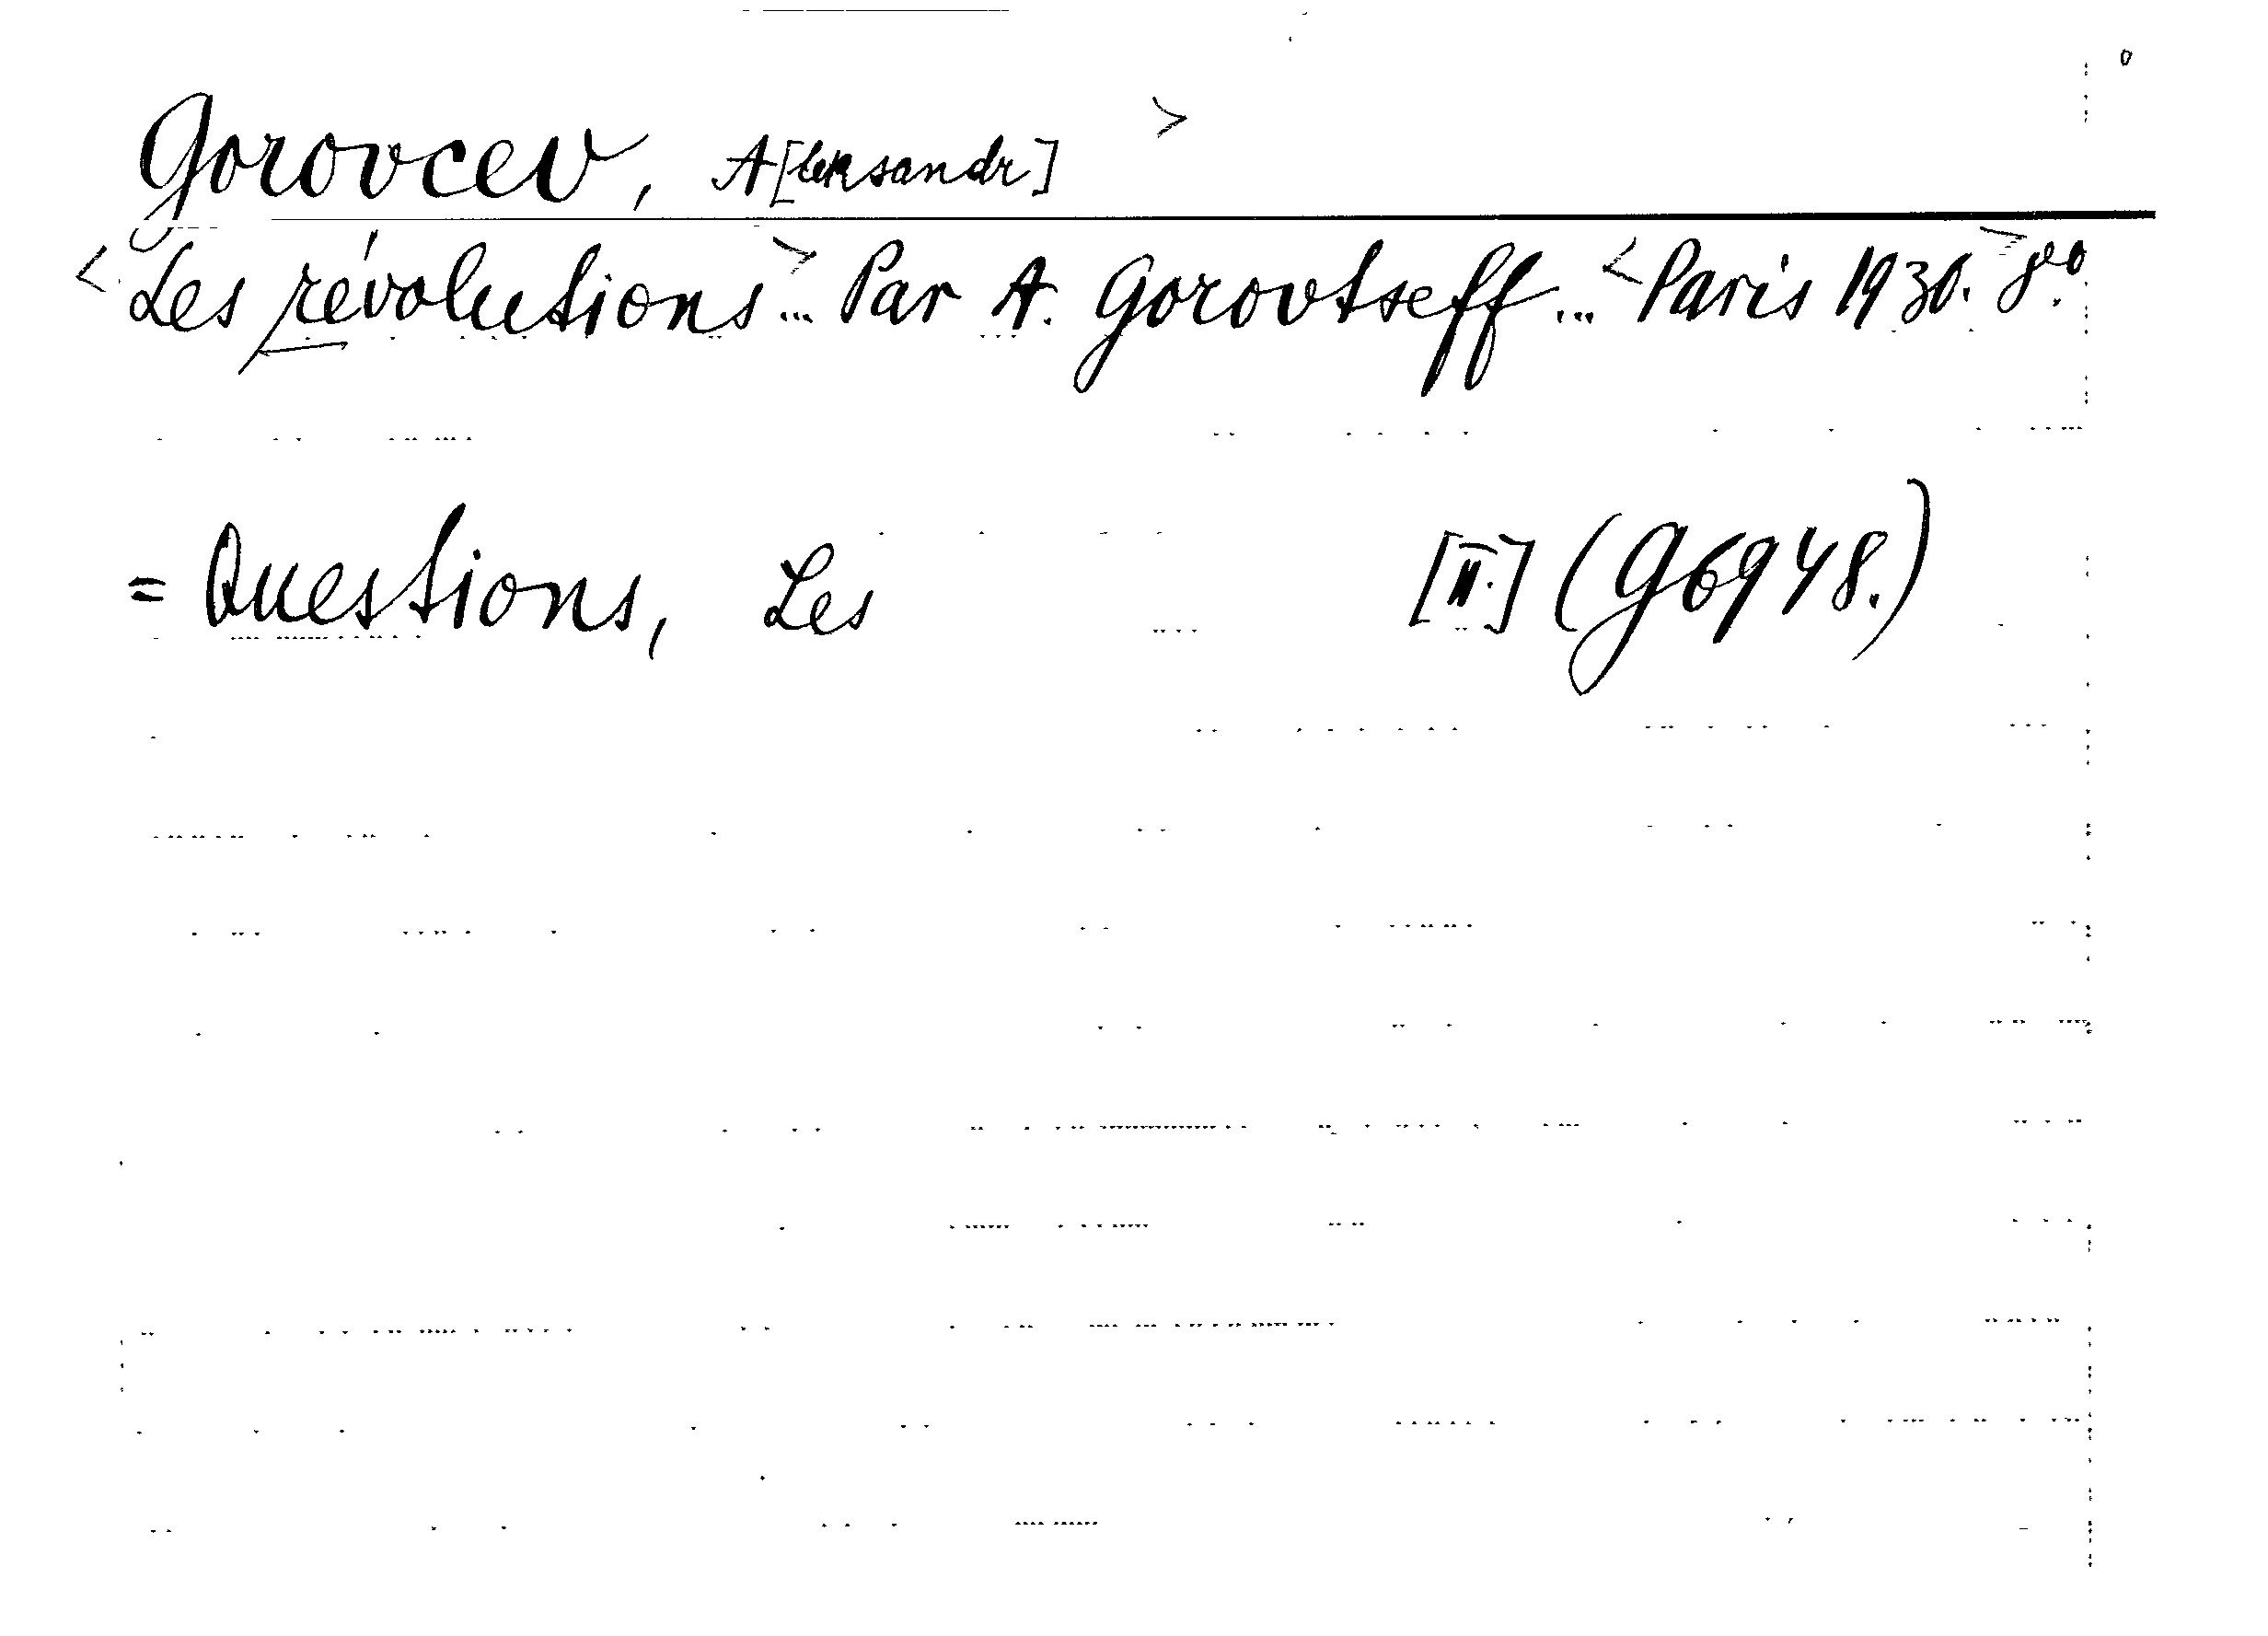 Gorovcev, A[leksandr] >
< Les révolutions > ... Par A. Gorovtseff ... < Paris 1930. > 8°.
= Questions, Les [II.] (G6948.)